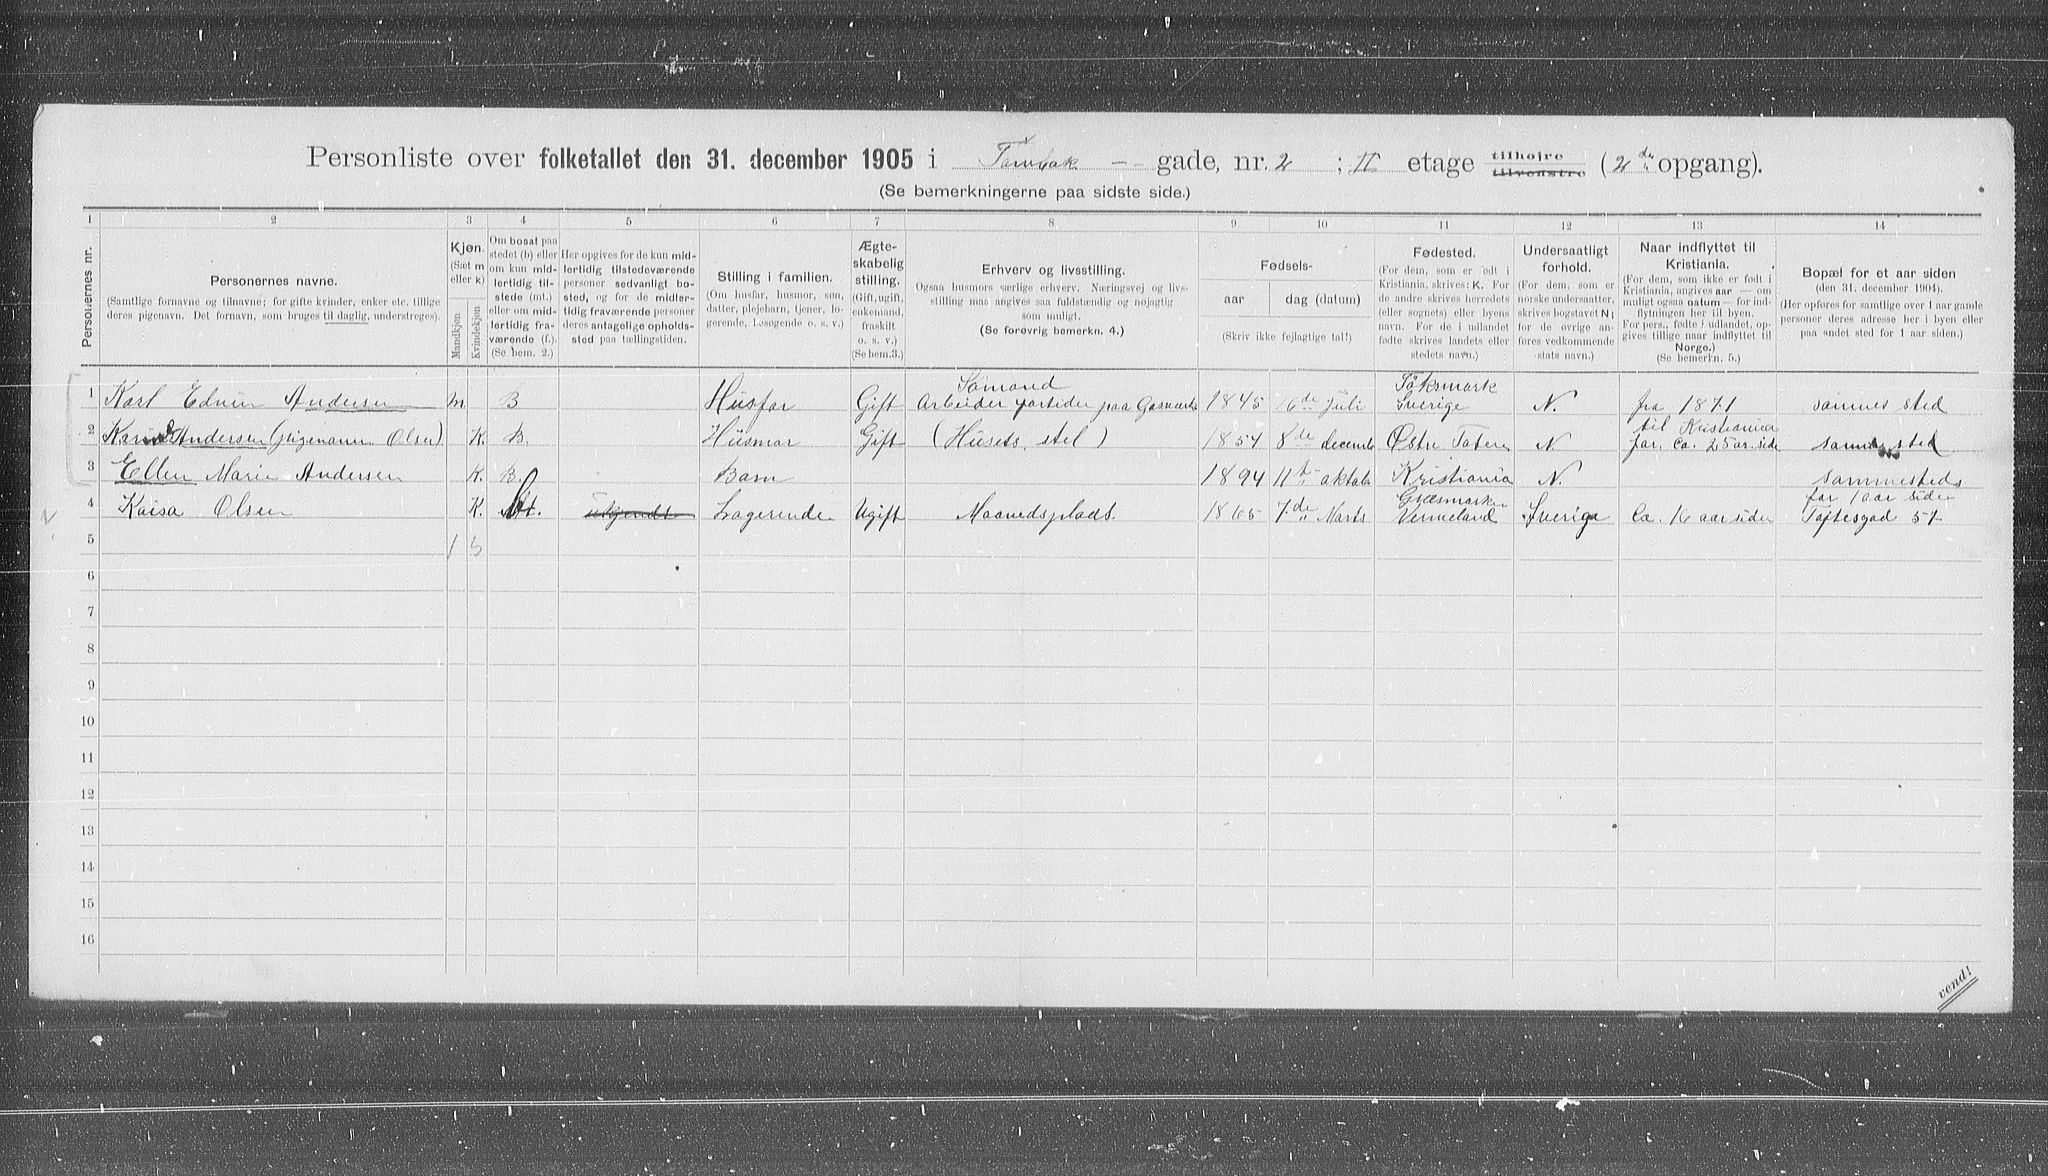 Personliste over folketallet den 31. december 1905 i Tømbak -- gade, nr. 2 ; II etage tilhøjre tilvenstre (2 de opgang).
(Se bemerkningerne paa sidste side.)
1 2 3 4 5 6 7 8 9 10 11 12 13 14
Personernes nr.
Personernes navne.
(Samtlige fornavne og tilnavne; for gifte kvinder, enker etc. tillige
deres pigenavn. Det fornavn, som bruges til daglig, understreges).
Kjøn.
(Sæt m
eller k)
Mandkjøn
Kvindekjøn
Om bosat paa
stedet (b) eller
om kun mid-
lertidig til-
stede (mt.)
eller om mid-
lertidig fra-
værende (f.)
(Se bem. 2.)
Her opgives for de kun mid-
lertidig tilstedeværende
personer sedvanlig bo-
sted, og for de midler-
tidig fraværende personer
deres antagelige opholds-
sted paa tællingstiden.
Stilling i familien.
(Om husfar, husmor, søn,
datter, plejebarn, tjener, lo-
gerende, Løsøgende o. s. v.)
Ægte-
skabelig
stilling.
(Gift, ugift,
enkemand,
fraskilt
o. s. v.)
(Se bem.3.)
Erhverv og livsstilling.
Ogsaa husmors særlige erhverv. Næringsvej og livs-
stilling maa angives saa fuldstændig og nøjagtig
som muligt.
(Se forøvrig bemerkn. 4.)
Fødsels-
aar
dag (datum)
(Skriv ikke fejlagtige tal!)
Fødested.
(For dem, som er født i
Kristiania, skrives: K. For
de andre skrives herredets
(eller sognets) eller byens
navn. For de i udlandet
fødte skrives landets eller
stedets navn.)
Undersaatligt
forhold.
(For dem, som er
norske undersaatter,
skrives bogstavet N;
for de øvrige an-
føres vedkommende
stats navn.)
Naar indflyttet til
Kristiania.
(For dem, som ikke er født i
Kristiania, angives aar — om
muligt ogsaa datum — for ind-
flytningen her til byen.
For pers., fødte i udlandet, op-
gives tillige naar indflyttet til
Norge.)
(Se bemerkn. 5.)
Bopæl for et aar siden
(den 31. december 1904).
(Her opføres for samtlige over 1 aar gamle
personer deres adresse her i byen eller
paa andet sted for 1 aar siden.)
1 Karl Edvin Andersen m. B Husfar Gift Sømand Arbeider paa Gasverk 1845 6 de Juli Töksmark Sverige N. fra 1871 sammes sted
2 Andersen (pigenavn Olsen) K. B. Husmor Gift (Husets stel) 1854 8 de decemb Østre N til Kristiania for ca. 25 aar side samme sted
3 Ellen Marie Andersen K. B. Barn 1894 11 te oktob Kristiania N. sammesteds
4 Kaisa Olsen K. Mt. ukjendt Logerende Ugift Maanedsplads. 1865 7 de Marts Græsmark Vermeland Sverige Ca. 16 aar siden for 1 aar siden Toftesgad 57
5 1 3
6
7
8
9
10
11
12
13
14
15
16
vend!